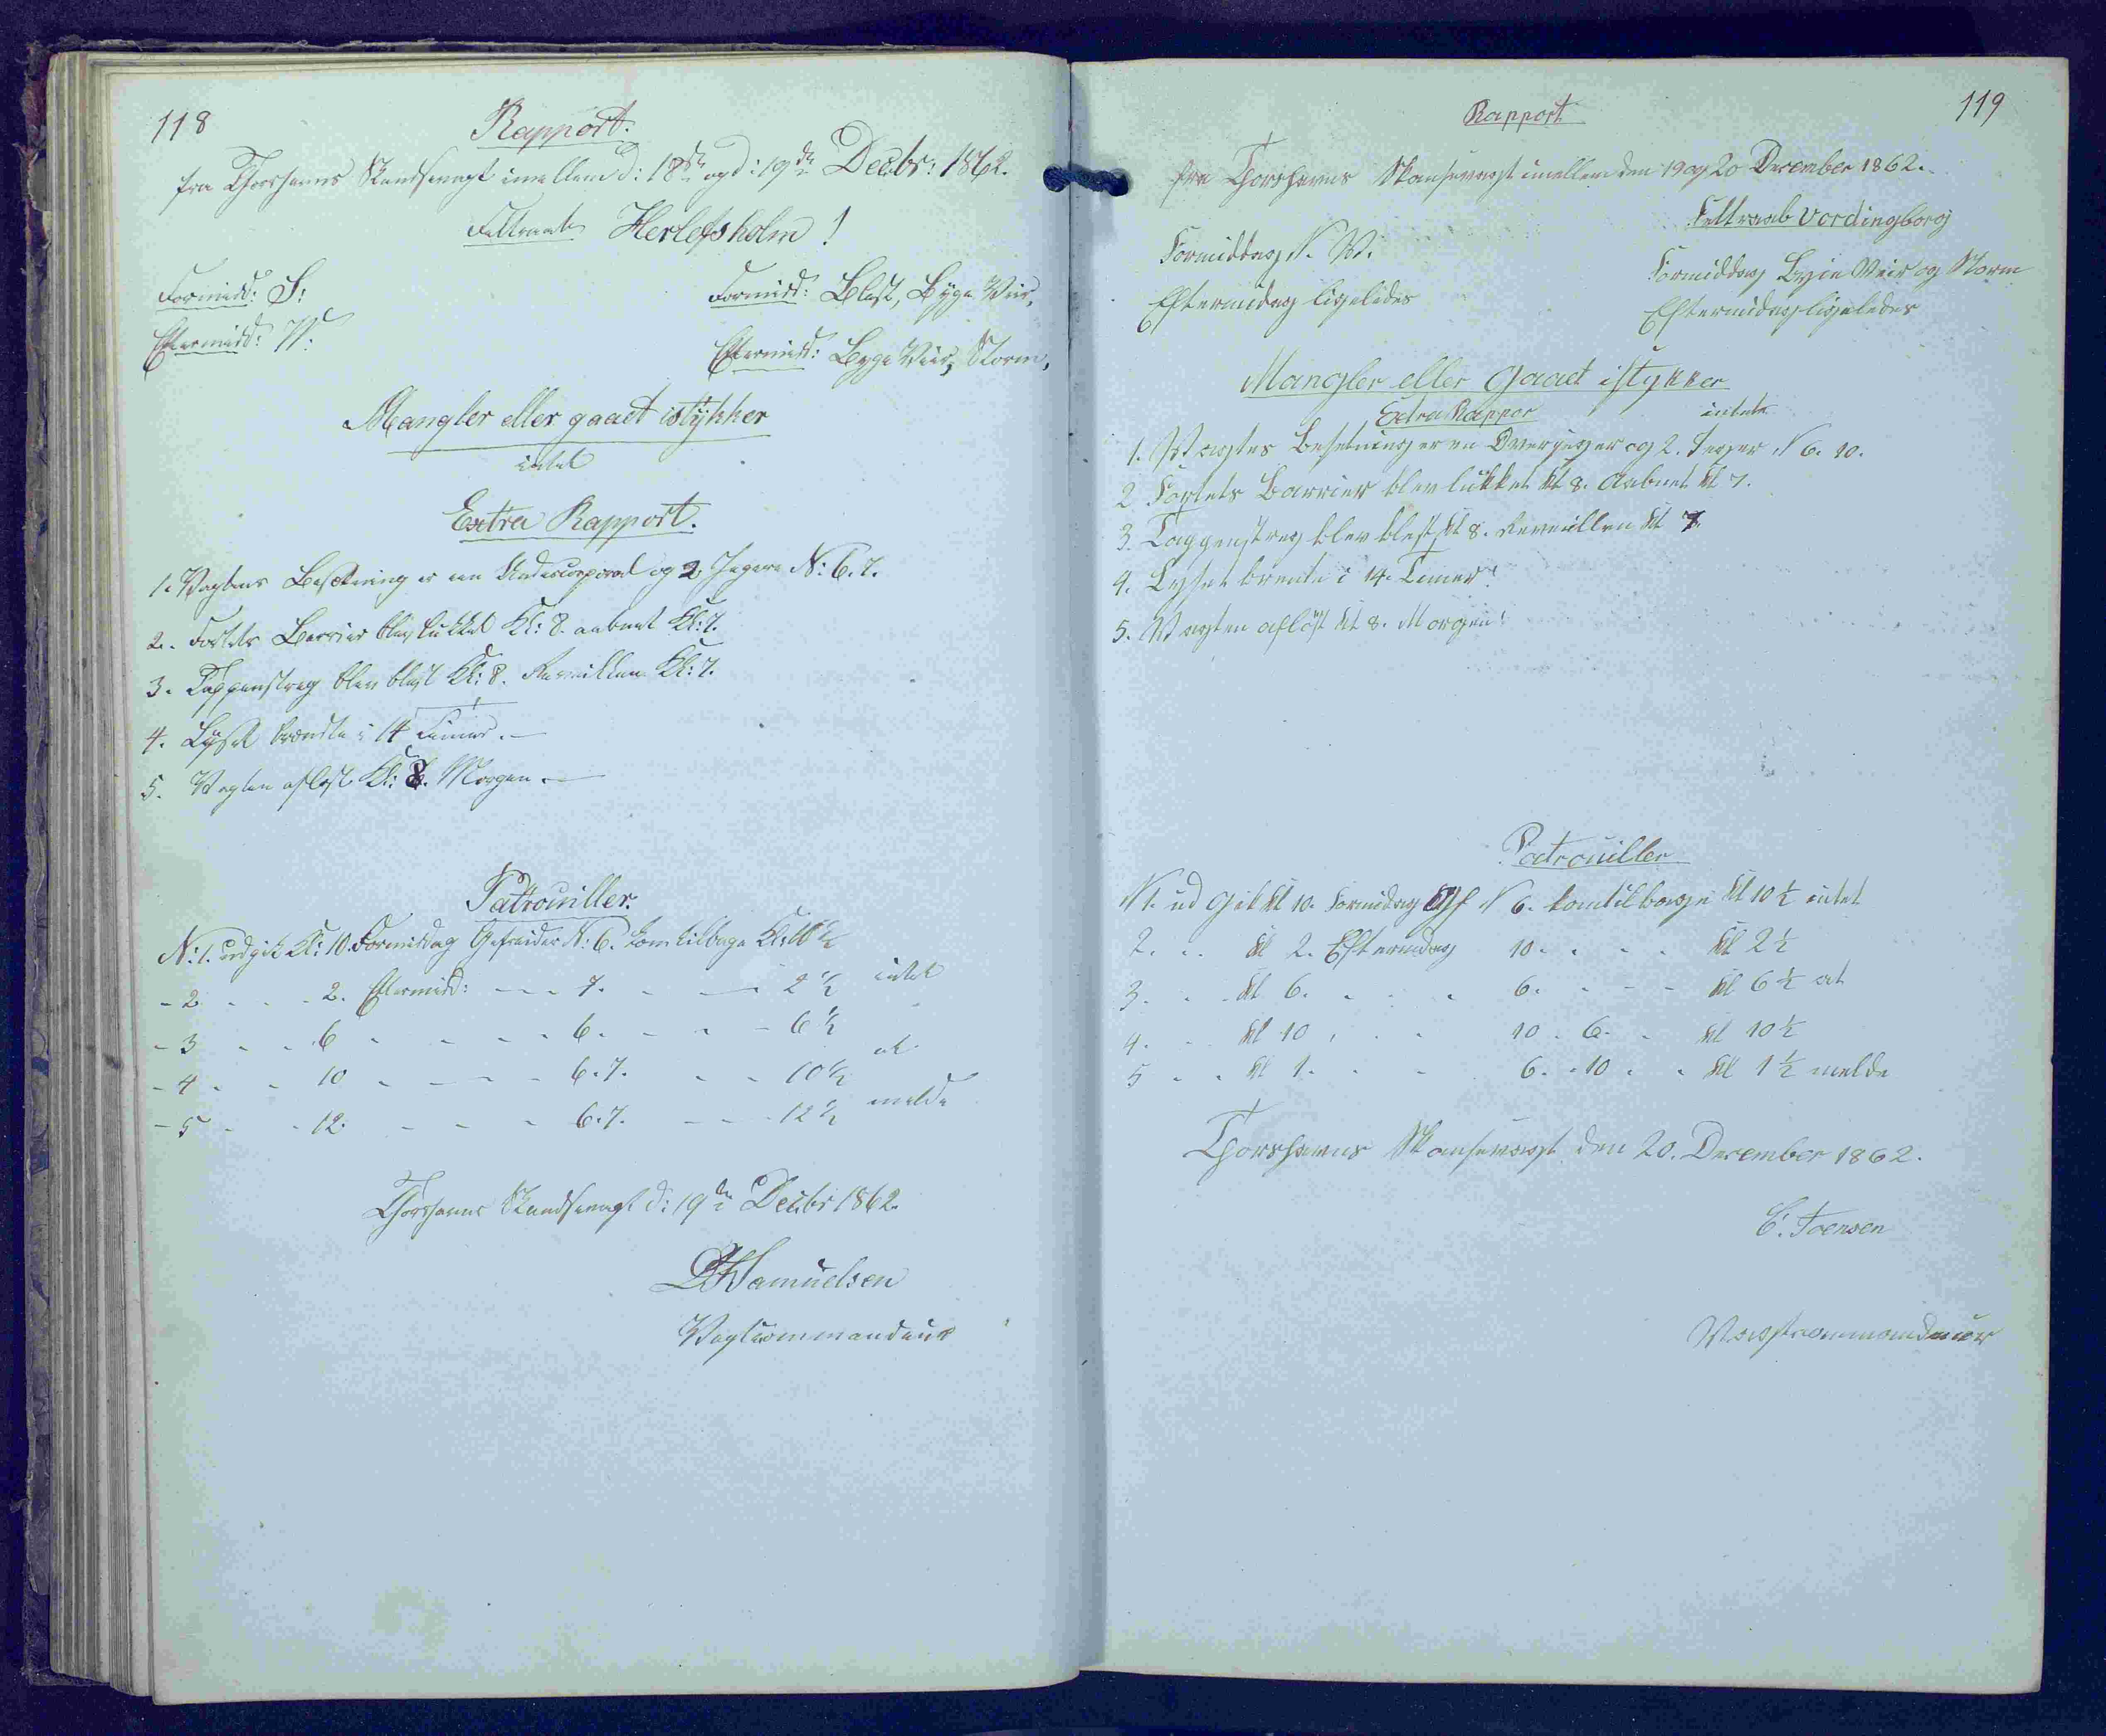 118
Rapport.
fra Thorshavns Skandsevagt imellem d: 18de og d: 19de Decbr: 1862.
Feltraab Herlofsholm !
Formidd: S: Formidd: Blæst, Byge Veir,
Eftermidd: V: Eftermidd: Byge Veir, Storm,
Mangler eller gaaet istÿkker
intet
Extra Rapport.
1. Vagtens Besætning er een Undercorporal og 2 Jægere N: 6. 7.
2. Fortets Barrier blev lukket Kl: 8. aabnet Kl: 7.
3. Tappenstreg blev blæst Kl: 8. Reveillen Kl: 7.
4. Lÿset brændte i 14 Timer.
5. Vagten afløst Kl: 8. Morgen.
Patrouiller.
N: 1. udgik Kl: 10. Formiddag Gefreider N: 6. kom tilbage Kl: 10½
- 2 - - - 2. Eftermidd: - - - 7. - - 2½ intet
- 3 - - 6 - - - - 6. - - - 6½
- 4 - - 10 - - - - 6. 7. - - 10½ at
- 5 - - 12. - - - 6. 7. - - - 12½ melde
Thorshavns Skandsevagt d: 19de Decbr 1862.
Samuelsen
Vagtcommandeur
119
Rapport
fra Thorshavns Skansevagt imellem den 19 og 20 December 1862.
Feltraab Vordingborg
Formiddag N. V. Formiddag Byie Veir og Storm
Eftermidag ligeledes Eftermidag ligeledes
Mangler eller gaaet istykker
Extra Rappor intet
1. Vagtes Besetning er en Overjeger og 2. Jeger N 6. 10.
2 Fortets Barrier blev lukket kl 8. Aabnet kl 7.
3. Tappenstreg blev blest kl 8. Reveillen kl 7
4. Lyset brente i 14. Timer!
5. Vagten afløst kl 8. Morgen!
Patrouiller
N 1. ud gik kl 10. Formidag Gf N 6. kom tilbage kl 10½ intet
2. . . kl 2. Eftermidag 10. . . . kl 2½
3. . . kl 6. . . . 6. . - - kl 6½ at
4. . . kl 10 . . . 10 . 6. . kl 10½
5 . . kl 1. . . . 6. . 10 . . kl 1½ melde
Thorshavns Skansevagt den 20. December 1862.
Joensen
Vagtcommandeur